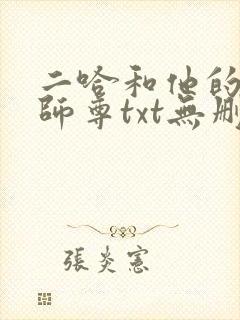 二哈和他的
師尊txt無刪
張炎憲